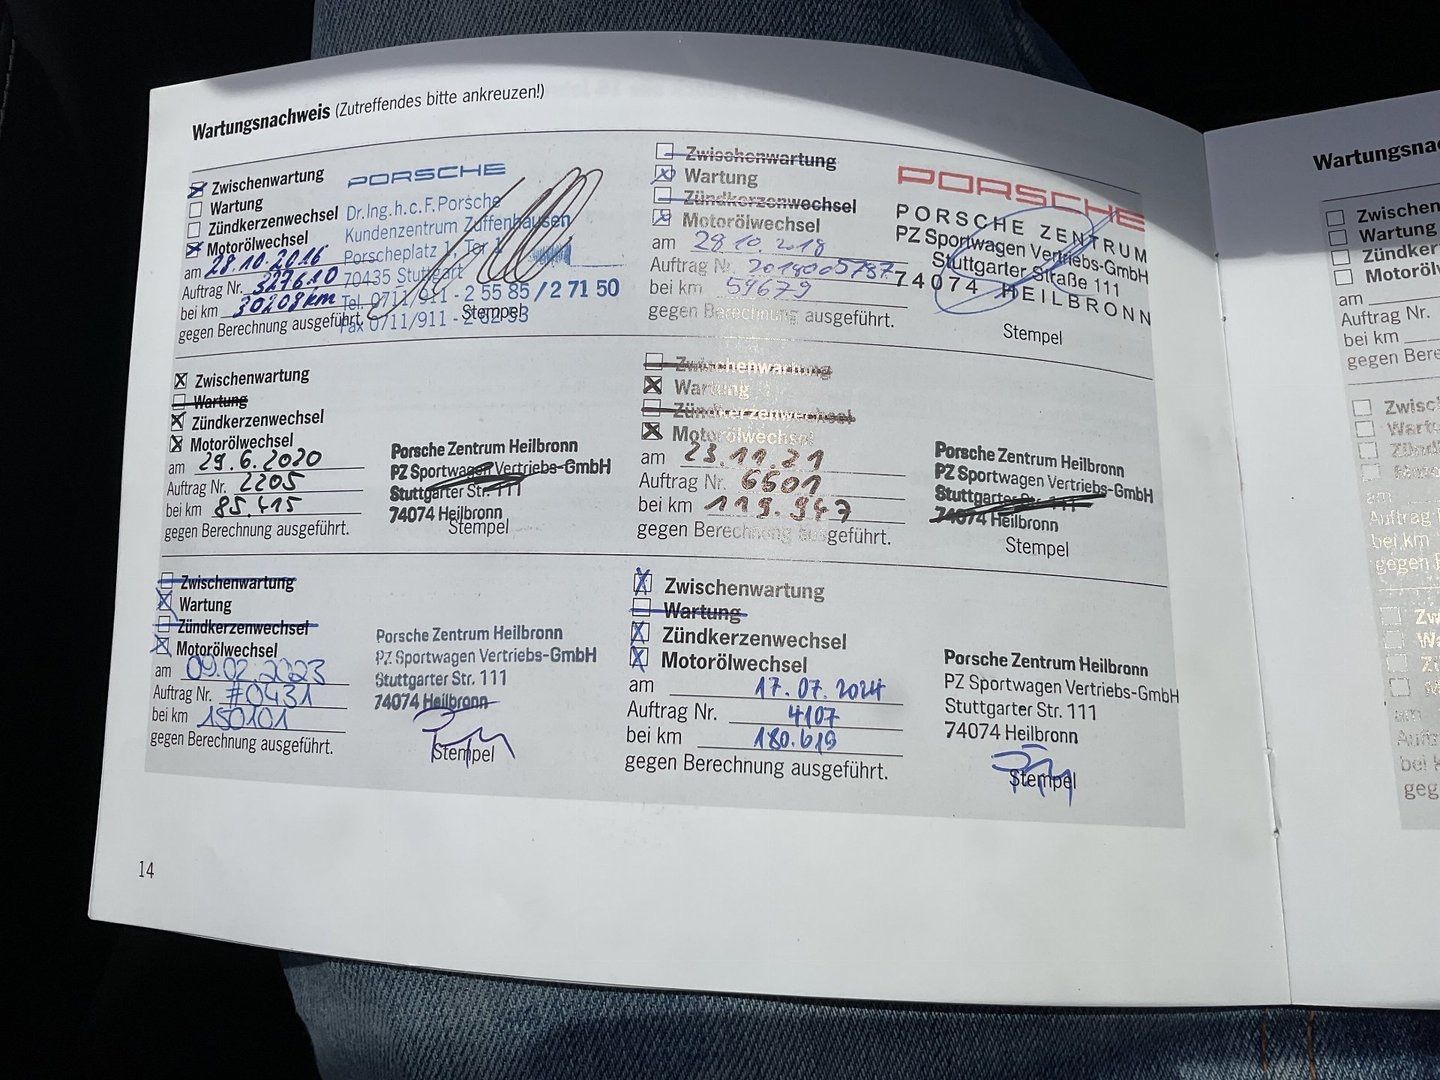 Wartungsnachweis (Zutreffendes bitte ankreuzen!)
Zwischenwartung
Wartung
Zündkerzenwechsel
Motorölwechsel
am 28.10.2016
Auftrag Nr. 327610
bei km 30208km
gegen Berechnung ausgeführt.
PORSCHE
Dr.Ing.h.c.F.Porsche
Kundenzentrum Zuffenhausen
Porscheplatz 1, Tor 1
70435 Stuttgart
Tel. 0711/911 - 2 55 85 / 2 71 50
Fax 0711/911 - 2 82 93
Stempel
Zwischenwartung
Wartung
Zündkerzenwechsel
Motorölwechsel
am 29.10.2018
Auftrag Nr. 2018005787
bei km 59679
gegen Berechnung ausgeführt.
PORSCHE
PORSCHE ZENTRUM
PZ Sportwagen Vertriebs-GmbH
Stuttgarter Straße 111
74074 HEILBRONN
Stempel
Zwischenwartung
Wartung
Zündkerzenwechsel
Motorölwechsel
am 29.6.2020
Auftrag Nr. 2205
bei km 85.415
gegen Berechnung ausgeführt.
Porsche Zentrum Heilbronn
PZ Sportwagen Vertriebs-GmbH
Stuttgarter Str. 111
74074 Heilbronn
Stempel
Zwischenwartung
Wartung
Zündkerzenwechsel
Motorölwechsel
am 23.11.21
Auftrag Nr. 6601
bei km 119.947
gegen Berechnung ausgeführt.
Porsche Zentrum Heilbronn
PZ Sportwagen Vertriebs-GmbH
Stuttgarter Str. 111
74074 Heilbronn
Stempel
Zwischenwartung
Wartung
Zündkerzenwechsel
Motorölwechsel
am 09.02.2023
Auftrag Nr. #0431
bei km 150101
gegen Berechnung ausgeführt.
Porsche Zentrum Heilbronn
PZ Sportwagen Vertriebs-GmbH
Stuttgarter Str. 111
74074 Heilbronn
Stempel
Zwischenwartung
Wartung
Zündkerzenwechsel
Motorölwechsel
am 17.07.2024
Auftrag Nr. 4107
bei km 180.619
gegen Berechnung ausgeführt.
Porsche Zentrum Heilbronn
PZ Sportwagen Vertriebs-GmbH
Stuttgarter Str. 111
74074 Heilbronn
Stempel
14
Wartungsna
Zwischen
Wartung
Zündkerze
Motorölwe
am
Auftrag Nr.
bei km
gegen Bere
Zwisc
Wart
Zünd
am
Auftrag
bei km
gegen B
Zw
am
bei
geg